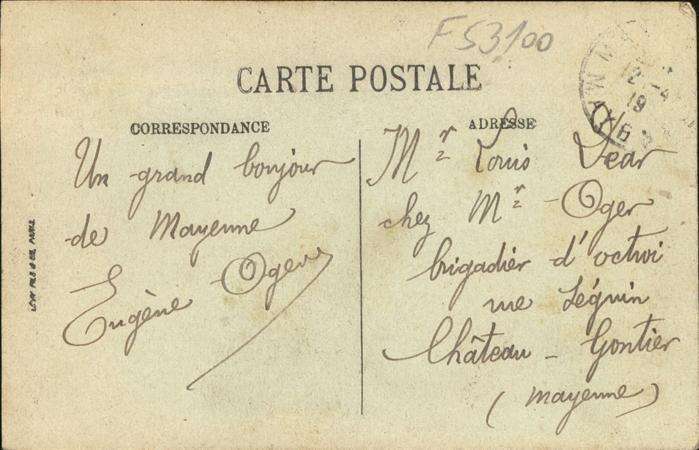 F 53100
CARTE POSTALE
CORRESPONDANCE
Un grand bonjour
de Mayenne
Eugène Oger
ADRESSE
Mr Louis
chez Mr Oger
brigadier d'octroi
rue Séguin
Château-Gontier
(Mayenne)
LEVY FILS & CIE, PARIS
12-4
19